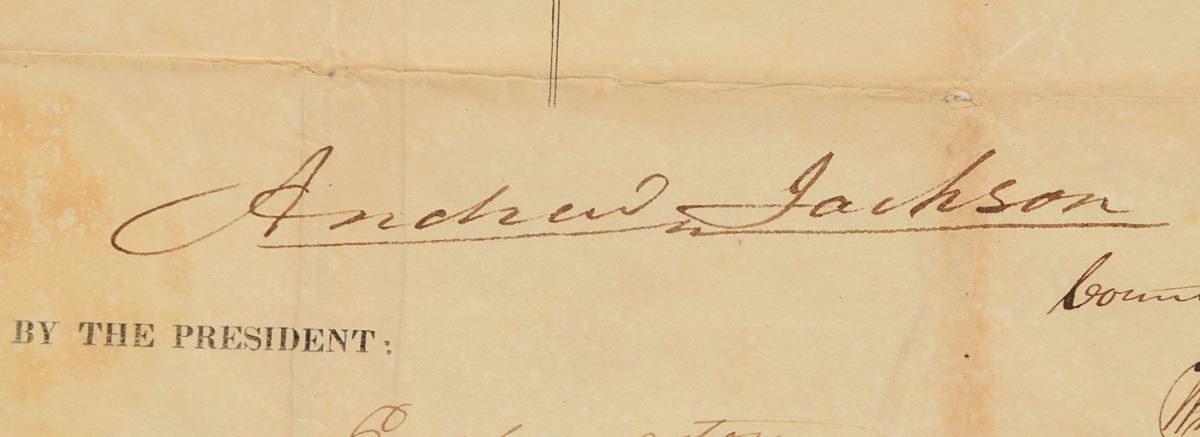 Andrew Jackson
BY THE PRESIDENT: